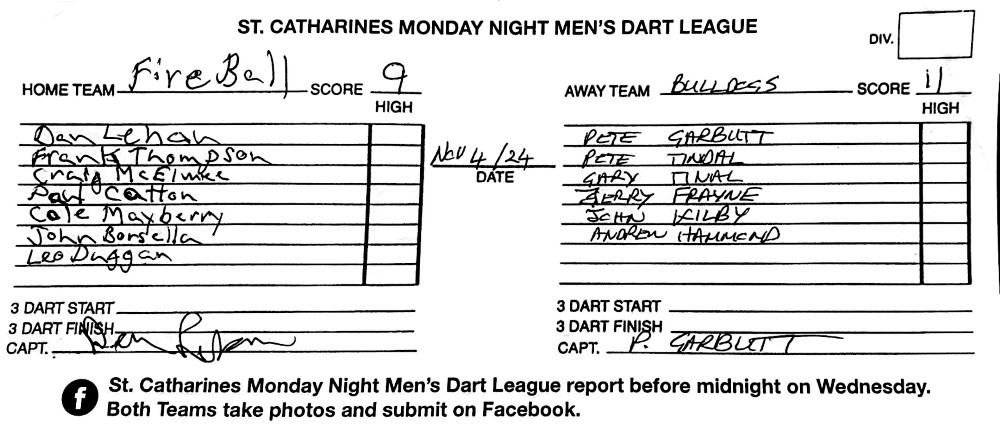 ST. CATHARINES MONDAY NIGHT MEN'S DART LEAGUE
DIV.
HOME TEAM Fire Ball SCORE 9
HIGH
AWAY TEAM BULLDOGS SCORE 11
HIGH
Dan Lehan
Frank Thompson
Craig McElwee
Paul Catton
Cole Mayberry
John Borsella
Leo Duggan
Nov 4/24
DATE
PETE GARBUTT
PETE TINDAL
GARY TINAL
JERRY FRAYNE
JOHN KILBY
ANDREW HAMMOND
3 DART START
3 DART FINISH
CAPT. Dan Lehan
3 DART START
3 DART FINISH
CAPT. P. GARBUTT
f St. Catharines Monday Night Men's Dart League report before midnight on Wednesday.
Both Teams take photos and submit on Facebook.